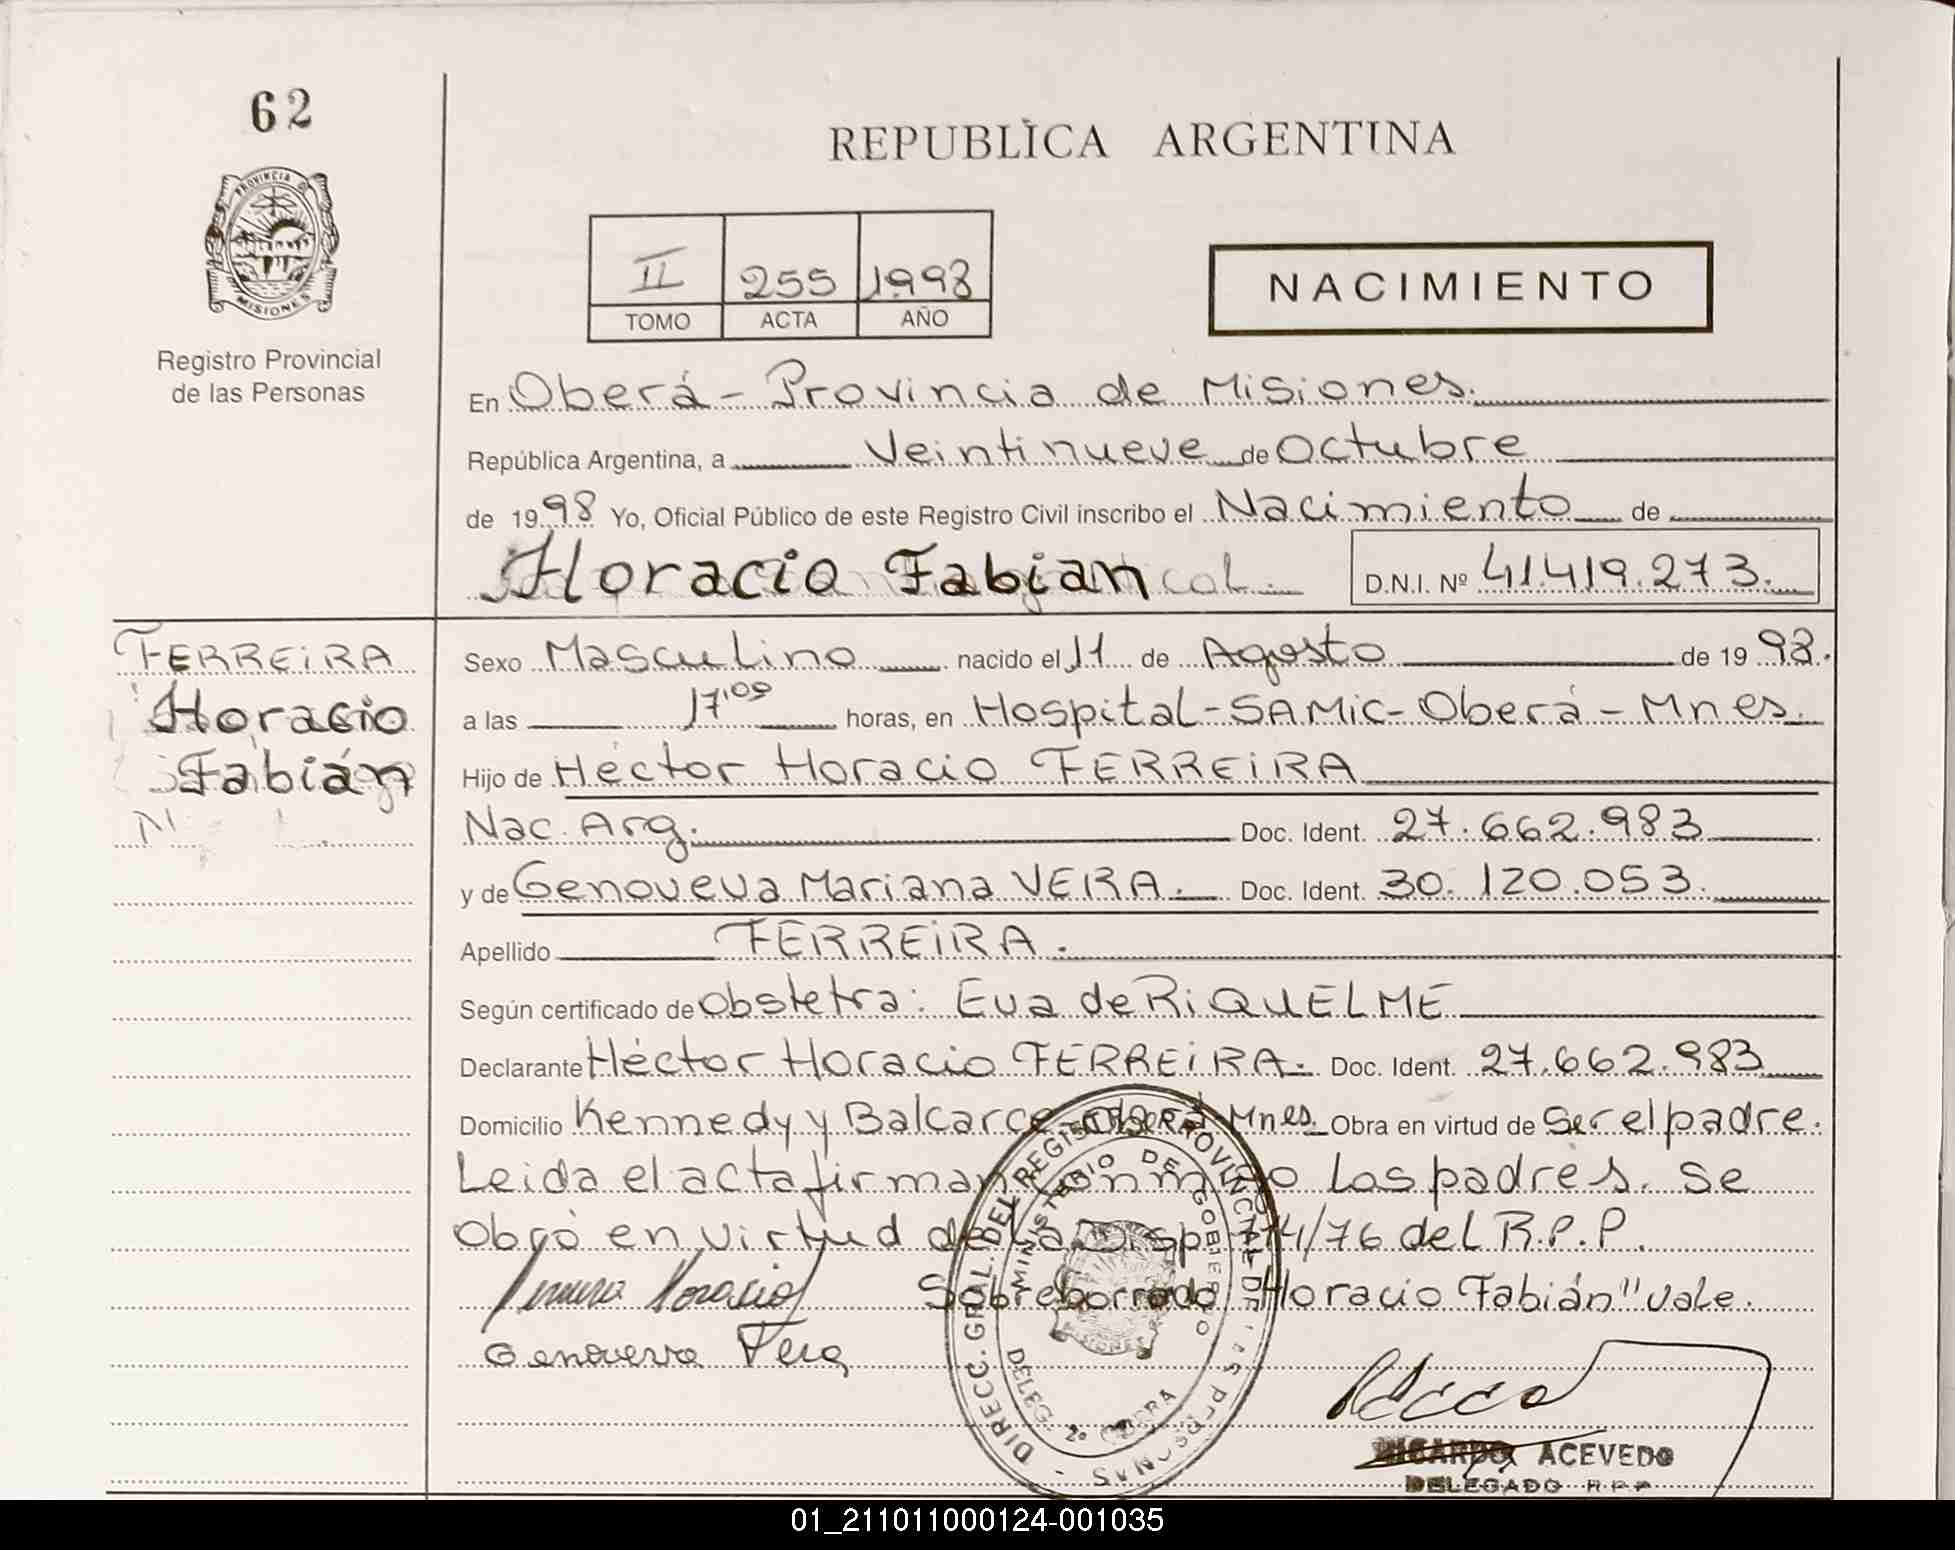 62
PROVINCIA D
MISIONES
Registro Provincial
de las Personas
REPUBLICA ARGENTINA
II 255 1998
TOMO ACTA AÑO
NACIMIENTO
En Oberá - Provincia de Misiones.
República Argentina, a Veintinueve de Octubre
de 1998 Yo, Oficial Público de este Registro Civil inscribo el Nacimiento de
Horacio Fabian D.N.I. Nº 41.419.273.
FERREIRA
Horacio
Fabián
Sexo Masculino nacido el 11 de Agosto de 1998.
a las 17'09 horas, en Hospital-SAMic-Oberá-Mnes.
Hijo de Héctor Horacio FERREIRA
Nac. Arg. Doc. Ident. 27.662.983
y de Genoveva Mariana VERA. Doc. Ident. 30.120.053.
Apellido FERREIRA.
Según certificado de obstetra: Eva de RiQUELME
Declarante Héctor Horacio FERREIRA. Doc. Ident. 27.662.983
Domicilio Kennedy y Balcarce-Oberá-Mnes. Obra en virtud de Ser el padre.
Leida el acta firman los padres. Se
Obró en virtud de la Disp 114/76 del R.P.P.
Sobreborrado "Horacio Fabián" vale.
Horacio
Genoveva Vera
DIRECC. GRAL. DEL REGISTRO PROVINCIAL DE LAS PERSONAS
MINISTERIO DE GOBIERNO
2º OBERA
RICARDO ACEVEDO
DELEGADO R P P
01_211011000124-001035